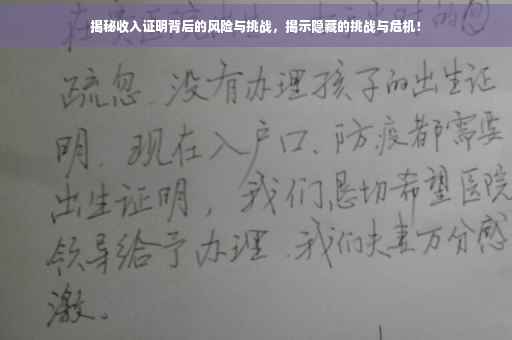 揭秘收入证明背后的风险与挑战，揭示隐藏的挑战与危机！
疏忽、没有办理孩子的出生证
明、现在入户口、防疫都需要
出生证明，我们恳切希望医院
领导给予办理、我们夫妻万分感
激。